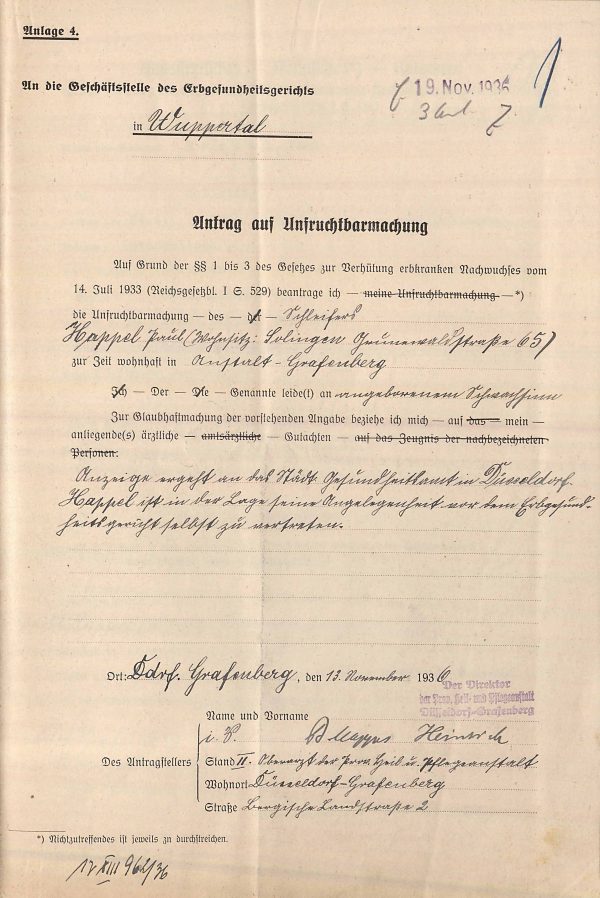 Anlage 4.
19. Nov. 1936
An die Geschäftsstelle des Erbgesundheitsgerichts
in Wuppertal
Antrag auf Unfruchtbarmachung
Auf Grund der §§ 1 bis 3 des Gesetzes zur Verhütung erbkranken Nachwuchses vom
14. Juli 1933 (Reichsgesetzbl. I S. 529) beantrage ich — meine Unfruchtbarmachung — *)
die Unfruchtbarmachung — des — der — Schleifers
Happel Paul (Wohnsitz: Solingen Grünewaldstraße 65)
zur Zeit wohnhaft in Anstalt-Grafenberg
Ich — Der — Die — Genannte leide(t) an angeborenem Schwachsinn
Zur Glaubhaftmachung der vorstehenden Angabe beziehe ich mich — auf das — mein —
anliegende(s) ärztliche — amtsärztliche — Gutachten — auf das Zeugnis der nachbezeichneten
Personen.
Anzeige ergeht an das Städt. Gesundheitsamt in Düsseldorf.
Happel ist in der Lage seine Angelegenheit vor dem Erbgesund-
heitsgericht selbst zu vertreten.
Ort: Ddrf. Grafenberg, den 13. November 1936
Der Direktor
der Prov. Heil- und Pflegeanstalt
Düsseldorf-Grafenberg
Name und Vorname
i. V.
Des Antragstellers
Stand II. Oberarzt der Prov. Heil u. Pflegeanstalt
Wohnort Düsseldorf-Grafenberg
Straße Bergische Landstraße 2
*) Nichtzutreffendes ist jeweils zu durchstreichen.